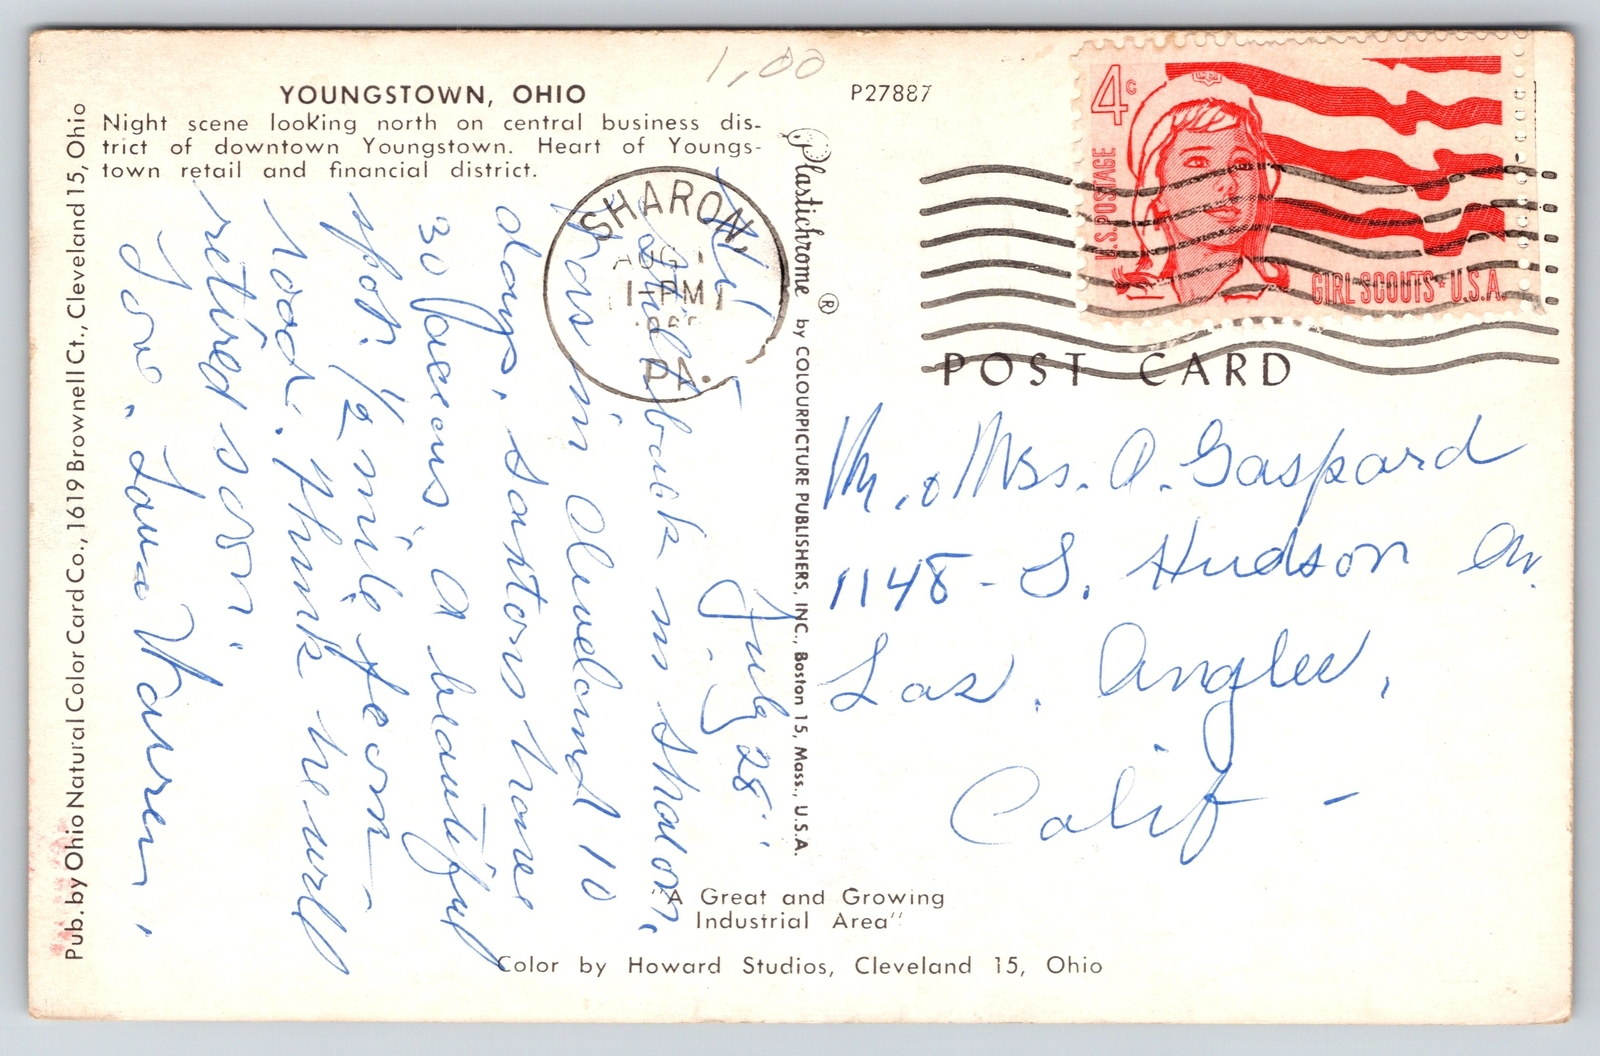 1,00
YOUNGSTOWN, OHIO
Night scene looking north on central business dis-
trict of downtown Youngstown. Heart of Youngs-
town retail and financial district.
P27887
4c
U.S. POSTAGE
GIRL SCOUTS * U.S.A.
SHARON,
AUG 1
1-PM
PA.
POST CARD
Mr. & Mrs. A. Gaspard
1148 - S. Hudson Av.
Los. Angles,
Calif -
July 28
Hi
back in Sharon,
was in Cleveland 10
days. Santons have
30 faseons, a beautiful
spot. 1/2 mile from
road. think he will
retired soon.
Love. Warren.
Plastichrome ® by COLOURPICTURE PUBLISHERS, INC., Boston 15, Mass., U.S.A.
Pub. by Ohio Natural Color Card Co., 1619 Brownell Ct., Cleveland 15, Ohio
"A Great and Growing
Industrial Area"
Color by Howard Studios, Cleveland 15, Ohio